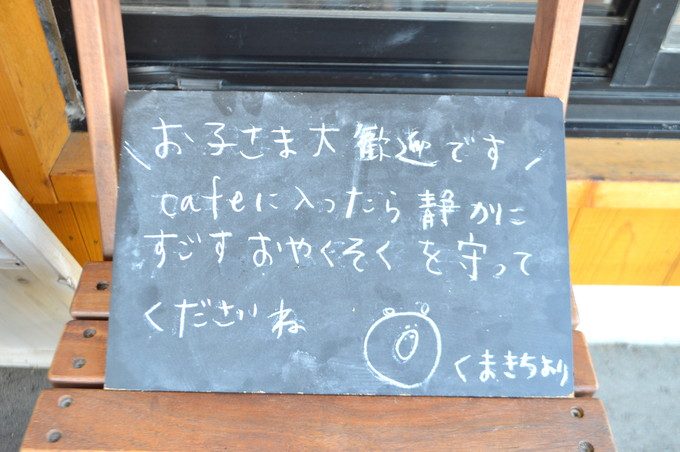 \お子さま大歓迎です/
cafeに入ったら静かに
すごすおやくそくを守って
くださいね
くまきちより